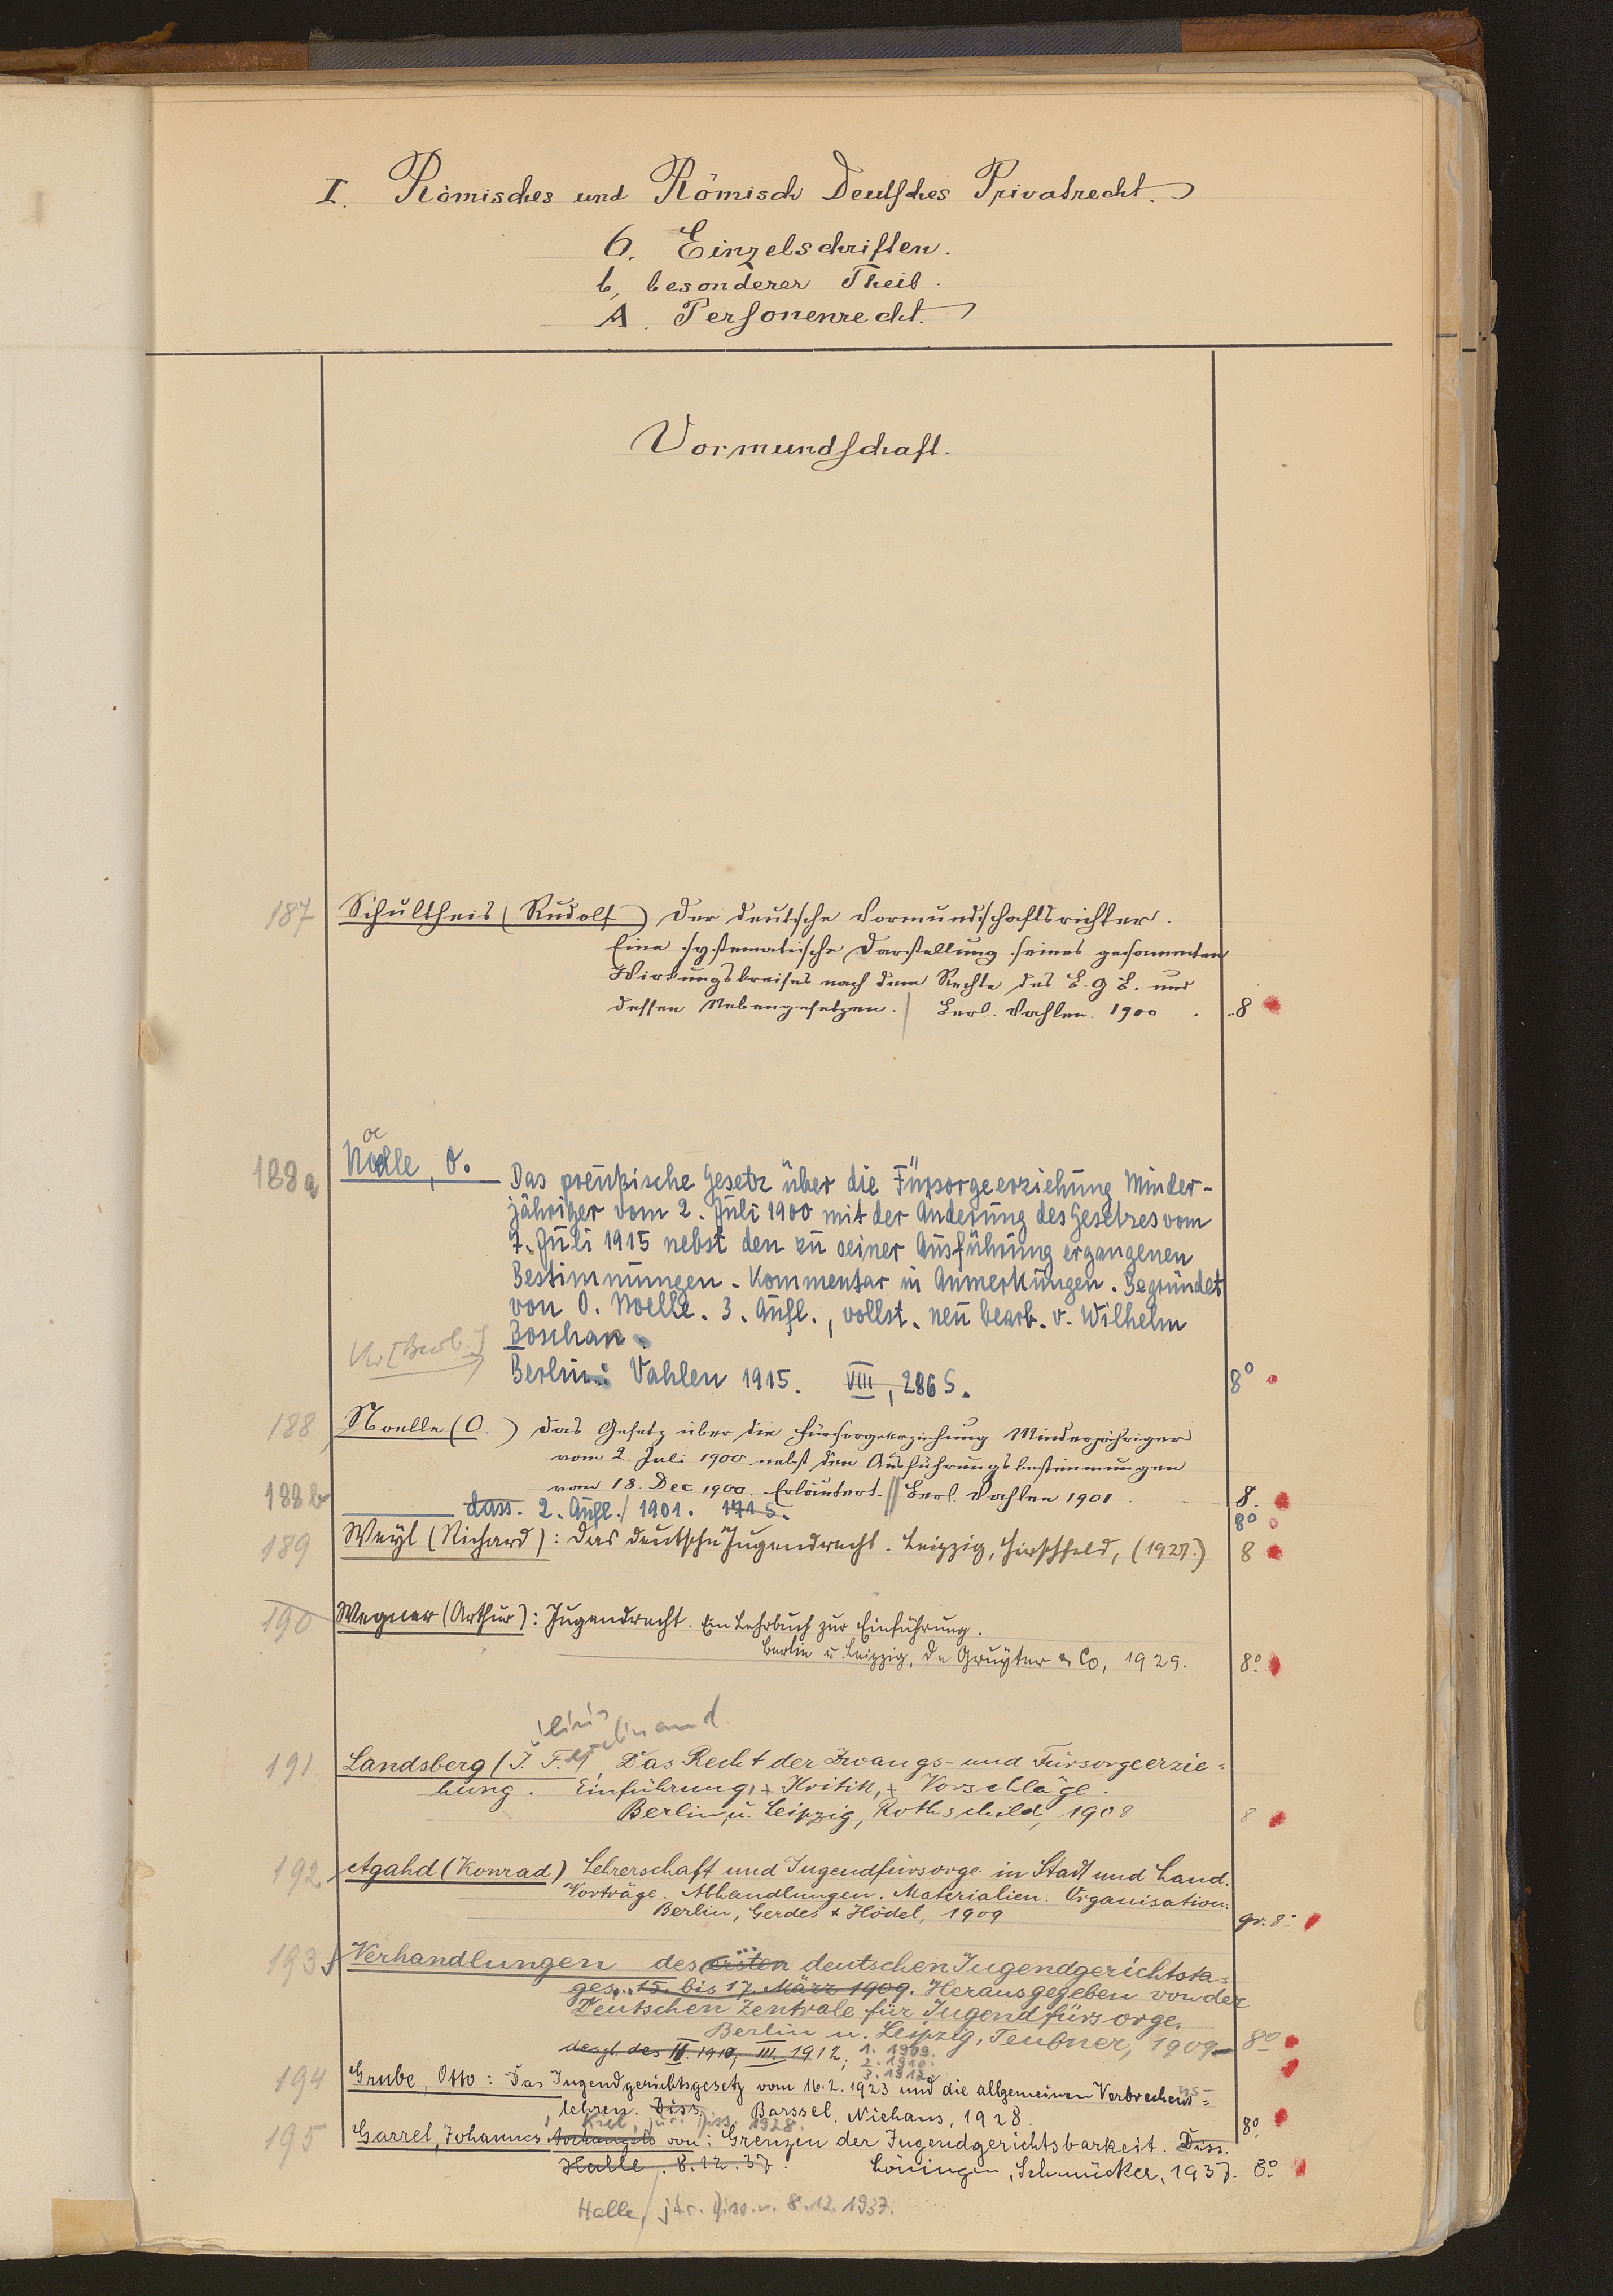 I. Römisches und Römisch Deutsches Privatrecht.
6. Einzelschriften.
b, besonderer Theil.
A. Personenrecht.
Vormundschaft.
187 Schultheis (Rudolf) Der deutsche Vormundschaftsrichter.
Eine systematische Darstellung seines gesammten
Wirkungskreises nach dem Rechte des B. G B. und
dessen Nebengesetzen. | Berl. Vahlen. 1900 . 8
oe
188a Nölle, O. Das preußische Gesetz über die Fürsorgeerziehung Minder-
jähriger vom 2. Juli 1900 mit der Änderung des Gesetzes vom
7. Juli 1915 nebst den zu seiner Ausführung ergangenen
Bestimmungen. Kommentar in Anmerkungen. Begründet
von O. Noelle. 3. Aufl., vollst. neu bearb. v. Wilhelm
Boschan.
Berlin: Vahlen 1915. VIII, 286 S. 8°
188 Noelle (O.) Das Gesetz über die Fürsorgeerziehung Minderjähriger
vom 2. Juli 1900 nebst den Ausführungsbestimmungen
vom 18. Dec. 1900. Erläutert. || Berl. Vahlen 1901. 8.
188b dass. 2. Aufl./ 1901. 171 S. 8°
189 Weyl (Richard): Das deutsche Jugendrecht. Leipzig, Hirschfeld, (1927.) 8
190 Wegner (Arthur): Jugendrecht. Ein Lehrbuch zur Einführung.
Berlin u. Leipzig, De Gruyter & Co, 1929. 8°.
191 Landsberg (J. F.) Das Recht der Zwangs- und Fürsorgeerzie-
hung. Einführung, + Kritik, + Vorschläge.
Berlin u. Leipzig, Rothschild, 1908 8
192 Agahd (Konrad) Lehrerschaft und Jugendfürsorge in Stadt und Land.
Vorträge. Abhandlungen. Materialien. Organisation.
Berlin, Gerdes & Hödel, 1909 gr. 8°
193 Verhandlungen des ersten deutschen Jugendgerichtsta-
ges... 15. bis 17. März 1909. Herausgegeben von der
Deutschen Zentrale für Jugendfürsorge.
Berlin u. Leipzig, Teubner, 1909 8°
desgl. des II. 1910, III. 1912; 1. 1909.
2. 1910.
3. 1912.
194 Grube, Otto: Das Jugendgerichtsgesetz vom 16.2.1923 und die allgemeinen Verbrechens-
lehren. Diss. Barssel, Niehaus, 1928. 8°.
Kiel, jur. Diss. 1928.
195 Garrel, Johannes von: Grenzen der Jugendgerichtsbarkeit. Diss.
Halle. 8.12.37. Löningen, Schmücker, 1937. 8°.
Halle, jur. Diss. v. 8.12.1937.